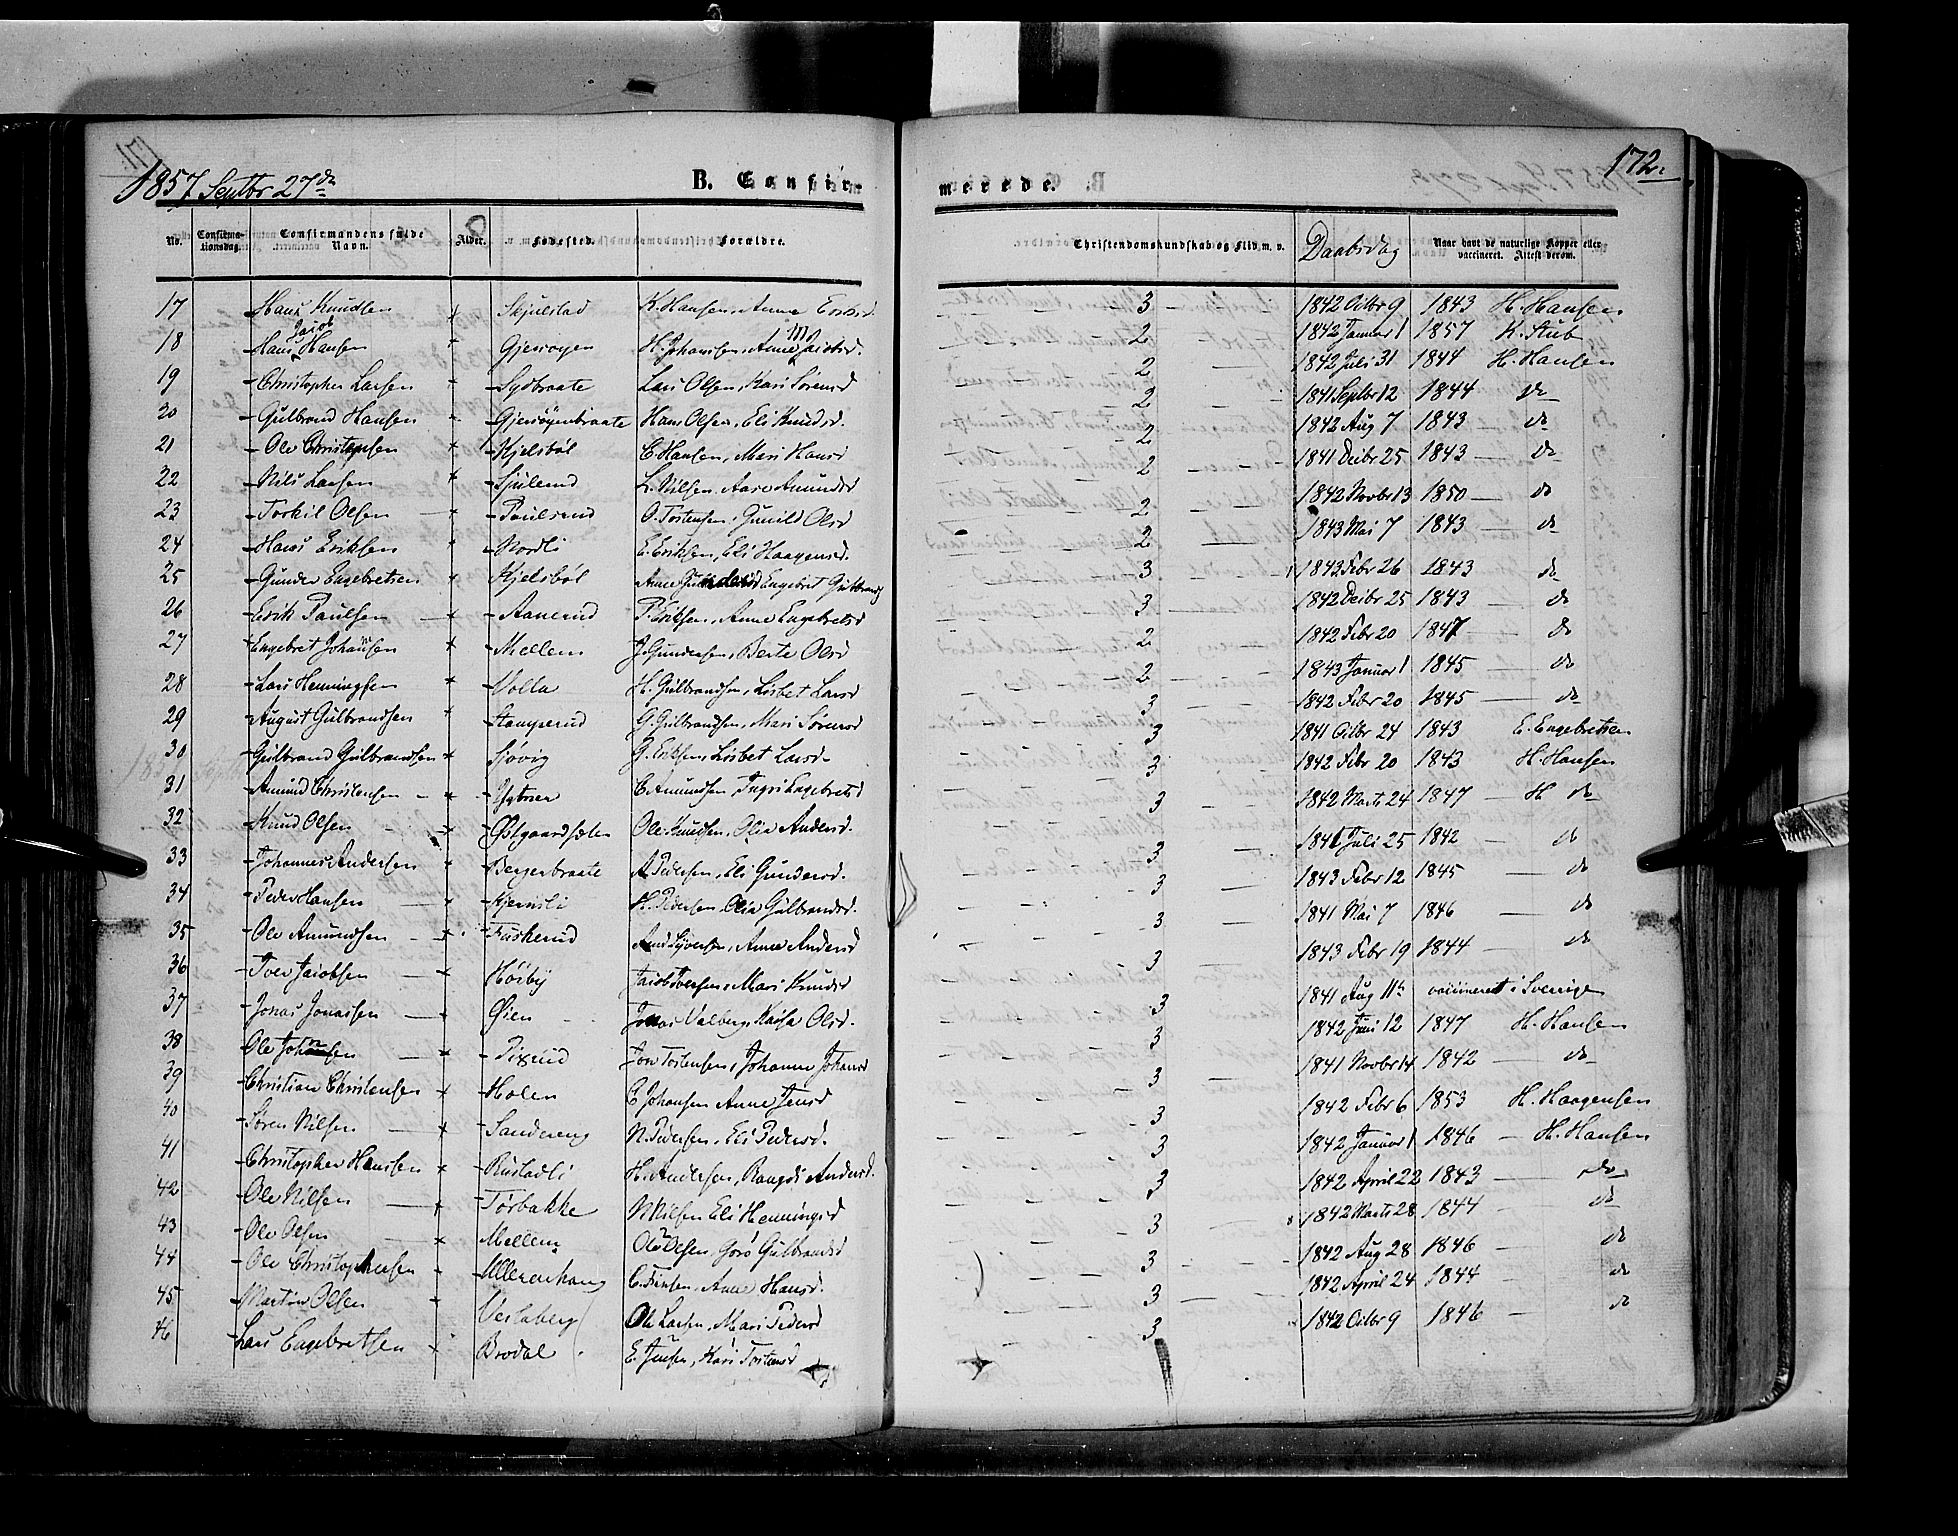 1857 Septbr 27de B. Confirmerede. 172.
No. Confirmationsdag. Confirmandens fulde Navn. Alder. Fødested. Forældre. Christendomskundskab og Flid m. v. Daabsdag Naar havt de naturlige Kopper eller vaccineret. Attest derom.
17 Hans Knudsen Skjulstad K. Hansen, Anne 3 1842 Octbr 9 1843 H. Hansen
18 Hans Jacob Hansen Gjersøyen H. Johannsen, Anne M Jacobsd. 2 1842 Januar 1 1857 K. Stub
19 Christopher Larsen Sydbraate Lars Olsen, Kari Sørensd 2 1842 Juli 31 1844 H. Hansen
20 Gulbrand Hansen Gjersøyenbraate Hans Olsen, Eli Knudsd. 2 1841 Septbr 12 1844 do
21 Ole Christophsen Kjelsbøl C. Hansen, Mari Hansd 2 1842 Aug 7 1843 do
22 Nils Larsen Sjulerud L. Nilsen, Aase Amundsd 2 1841 Decbr 25 1843 do
23 Torkil Olsen Paulsrud O. Torstensen, Gunild Olsd 2 1842 Novbr 13 1850 do
24 Hans Eriksen Nordli E. Eriksen, Eli Haagensd. 2 1843 Mai 7 1843 do
25 Gunder Engebretsen Kjelsbøl Anne Gundersd Engebret Gulbrands 3 1843 Febr 26 1843 do
26 Erik Paulsen Aanerud P. Eriksen, Anne Engebretsd 3 1842 Decbr 25 1843 do
27 Engebret Johansen Mellem J. Gundersen, Berte Olsd 2 1842 Febr 20 1847 do
28 Lars Henningsen Volla H. Gulbrandsen, Lisbet Larsd 2 1843 Januar 1 1845 do
29 August Gulbrandsen Stamperud G. Gulbrandsen, Mari Sørensd 3 1842 Febr 20 1845 do
30 Gulbrand Gulbrandsen Sjøvig G. Eriksen, Lisbet Larsd 3 1841 Octbr 24 1843 E. Engebretsen
31 Amund Christensen C. Amundsen, Ingri Engebretsd 3 1842 Febr 20 1843 H. Hansen
32 Knud Olsen Østgaardsæter Ole Knudsen, Olia Andersd. 3 1842 Marts 24 1847 H do
33 Johannes Andersen Bergerbraate A. Pedersen, Eli Gundersd. 3 1841 Juli 25 1842 do
34 Peder Hansen Kjernsli H. Pedersen, Olia Gulbrandsd. 3 1843 Febr 12 1845 do
35 Ole Amundsen Fuskerud Amd Syversen, Anne Andersd 3 1841 Mai 7 1846 do
36 Iver Jacobsen Høiby Jacob Iversen, Mari Knudsd 3 1843 Febr 19 1844 do
37 Jonas Jonassen Øien Jonas Valberg, Kaisa Olsd. 3 1841 Aug 11te vaccineret i Sverrige
38 Ole Johnsen Pixrud Jon Torstensen, Johanne Johansd 3 1842 Juni 12 1847 H. Hansen
39 Christian Christensen Holen C. Johansen Anne Jensd 3 1841 Novbr 14 1842 do
40 Søren Nilsen Sandereng N. Pedersen, Eli Pedersd. 3 1842 Febr 6 1853 H. Haagensen
41 Christopher Hansen Rustadli H. Andersen, Rangdi Andersd. 3 1842 Januar 1 1846 H. Hansen
42 Ole Nilsen Torbakke N. Nilsen Eli Henningsd 3 1842 April 22 1843 do
43 Ole Olsen Mellem Ole Olsen, Goro Gulbrandsd 3 1842 Marts 28 1844 do
44 Ole Christophersen Ullerenhaug C. Finsen, Anne Hansd. 3 1842 Aug 28 1846 do
45 Martin Olsen Vestaberg Ole Larsen, Mari Pedersd 3 1842 April 24 1844 do
46 Lars Engebretsen Brodal E. Jensen, Kari Torstensd 3 1842 Octbr 9 1846 do